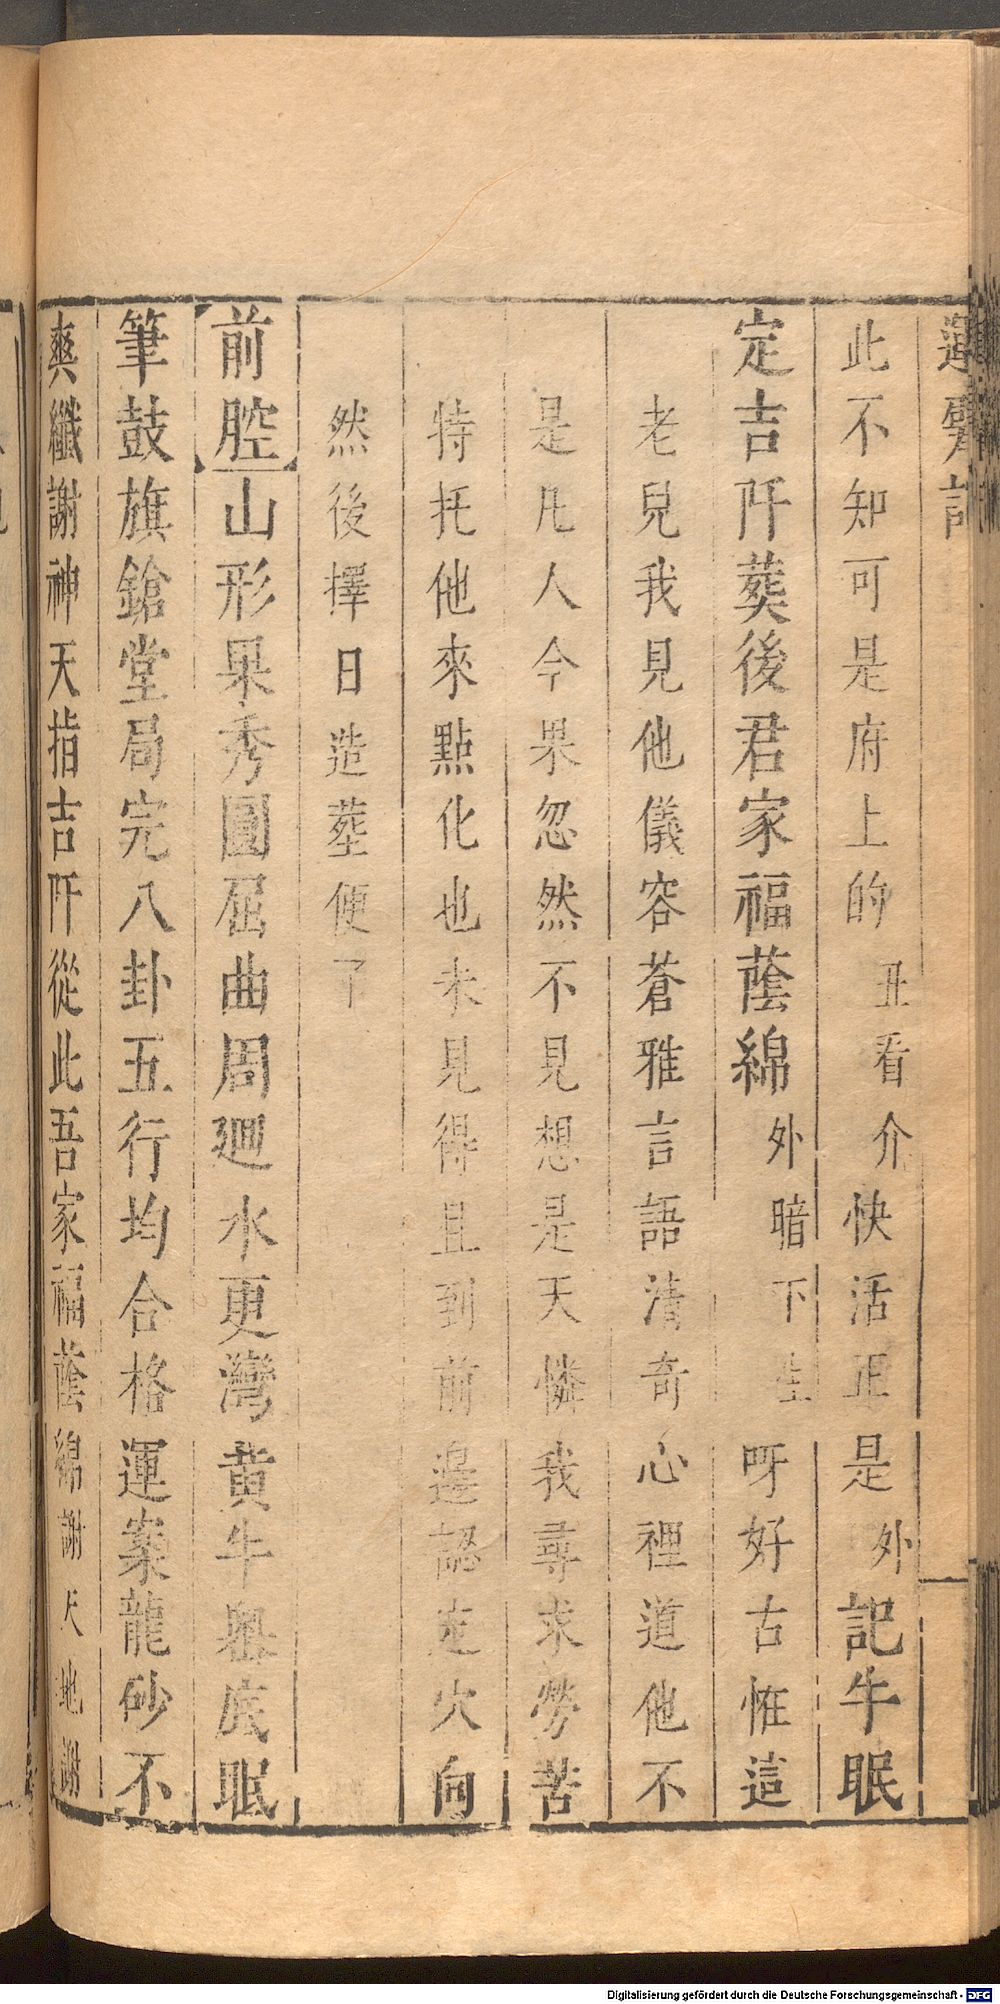 運甓記
此不知可是府上的丑看介快活正是外記牛眠
定吉阡葬後君家福蔭綿外暗下生呀好古恠這
老兒我見他儀容蒼雅言語清奇心裡道他不
是凡人今果忽然不見想是天憐我尋求勞苦
特托他來點化也未見得且到前邊認定穴向
然後擇日造塟便了
前腔山形果秀圓屈曲周廻水更灣黃牛舉底眠
筆鼓旗鎗堂局完八卦五行均合格運案龍砂不
爽纖謝神天指吉阡從此吾家福蔭綿謝天地謝
Digitalisierung gefördert durch die Deutsche Forschungsgemeinschaft - DFG